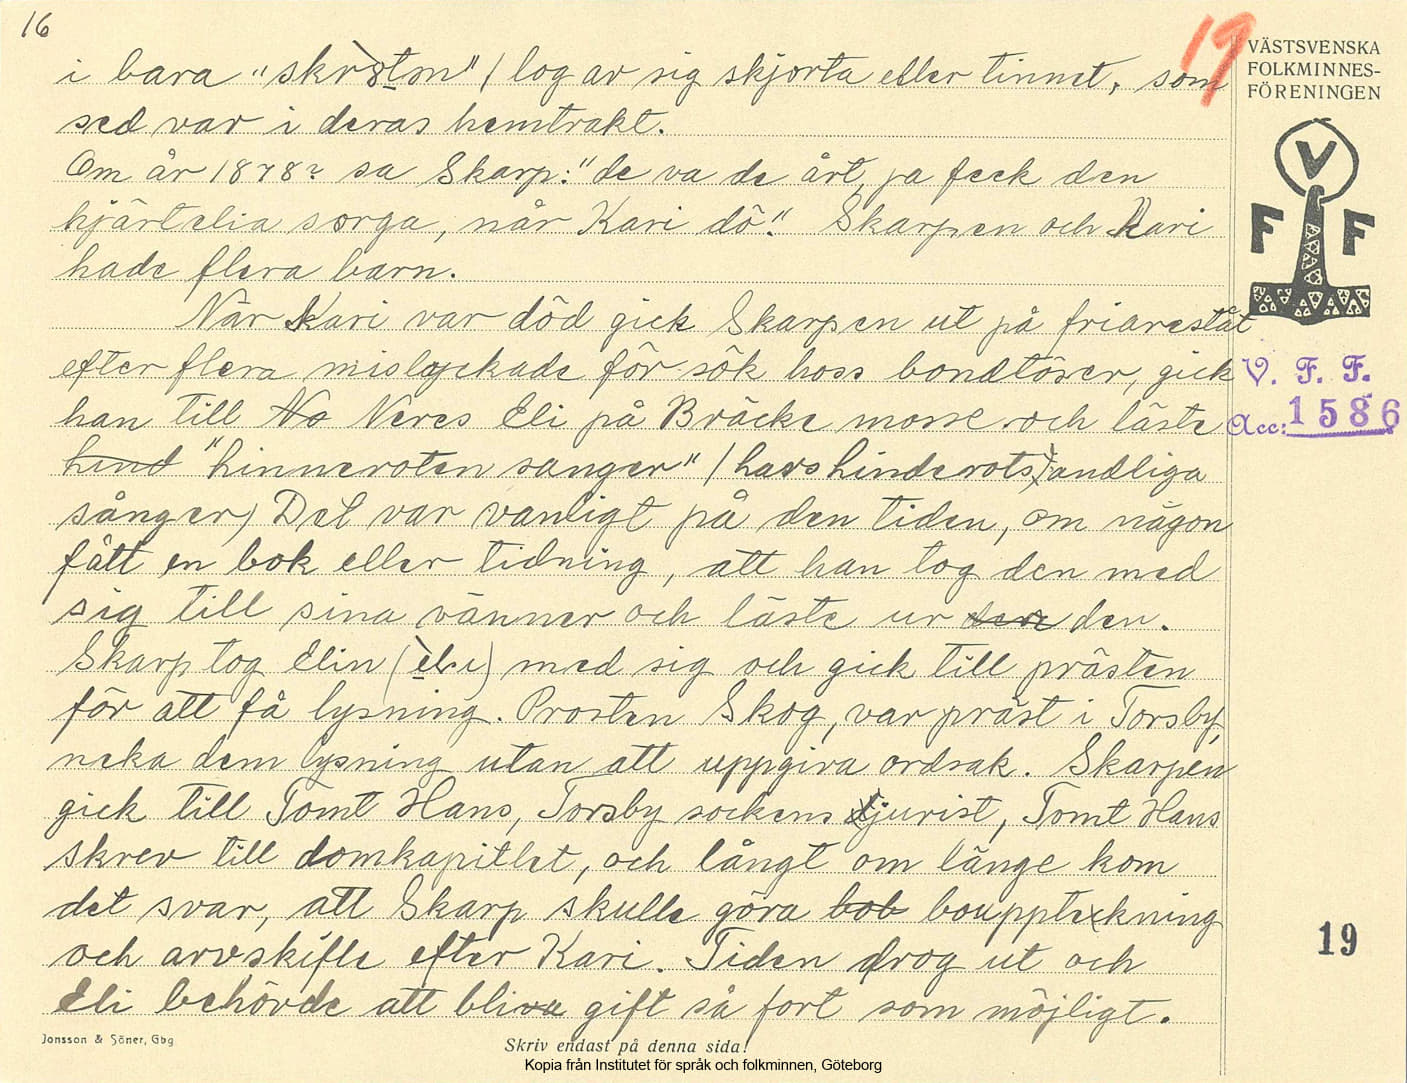 16
19
VÄSTSVENSKA
FOLKMINNES-
FÖRENINGEN
V
F F
V. F. F.
Acc: 1586
i bara "skrotn" / log av sig skjorta eller linnet, som
sed var i deras hemtrakt.
Om år 1878? sa Skarp: "de va de årt, ja feck den
hjärtelia sorga, når Kari dö." Skarpen och Kari
hade flera barn.
När Kari var död gick Skarpen ut på friareståt
efter flera mislyckade försök hoss bondtöser, gick
han till No Neres Eli på Bräcke mosse och läste
hind "hinneroten sanger" / havshinderots, andliga
sånger) Det var vanligt på den tiden, om någon
fått en bok eller tidning, att han tog den med
sig till sina vänner och läste ur den den.
Skarp tog Elin (èle) med sig och gick till prästen
för att få lysning. Prosten Skog, var präst i Torsby,
neka dem lysning utan att uppgiva ordsak. Skarpen
gick till Tomt Hans, Torsby sockens jurist, Tomt Hans
skrev till domkapitlet, och långt om länge kom
det svar, att Skarp skulle göra bob bouppteckning
och arvskifte efter Kari. Tiden drog ut och
Eli behövde att bliva gift så fort som möjligt.
19
Jonsson & Söner, Gbg
Skriv endast på denna sida!
Kopia från Institutet för språk och folkminnen, Göteborg